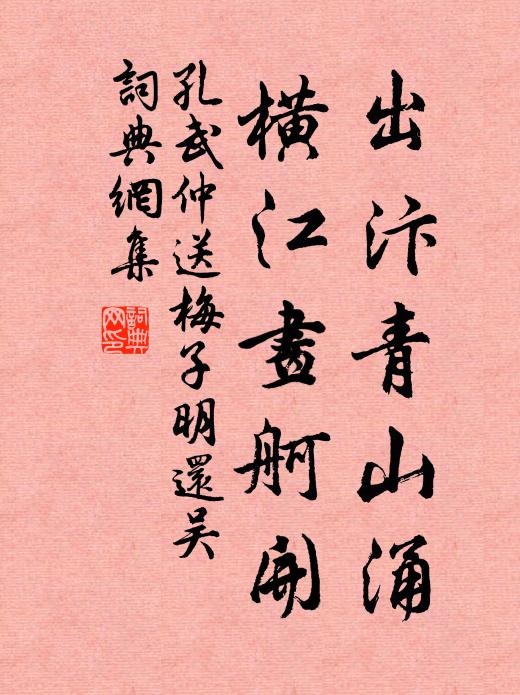 出汴青山涌
橫江畫舸開
孔武仲送梅子明還吴
詞典網集
詞典網印